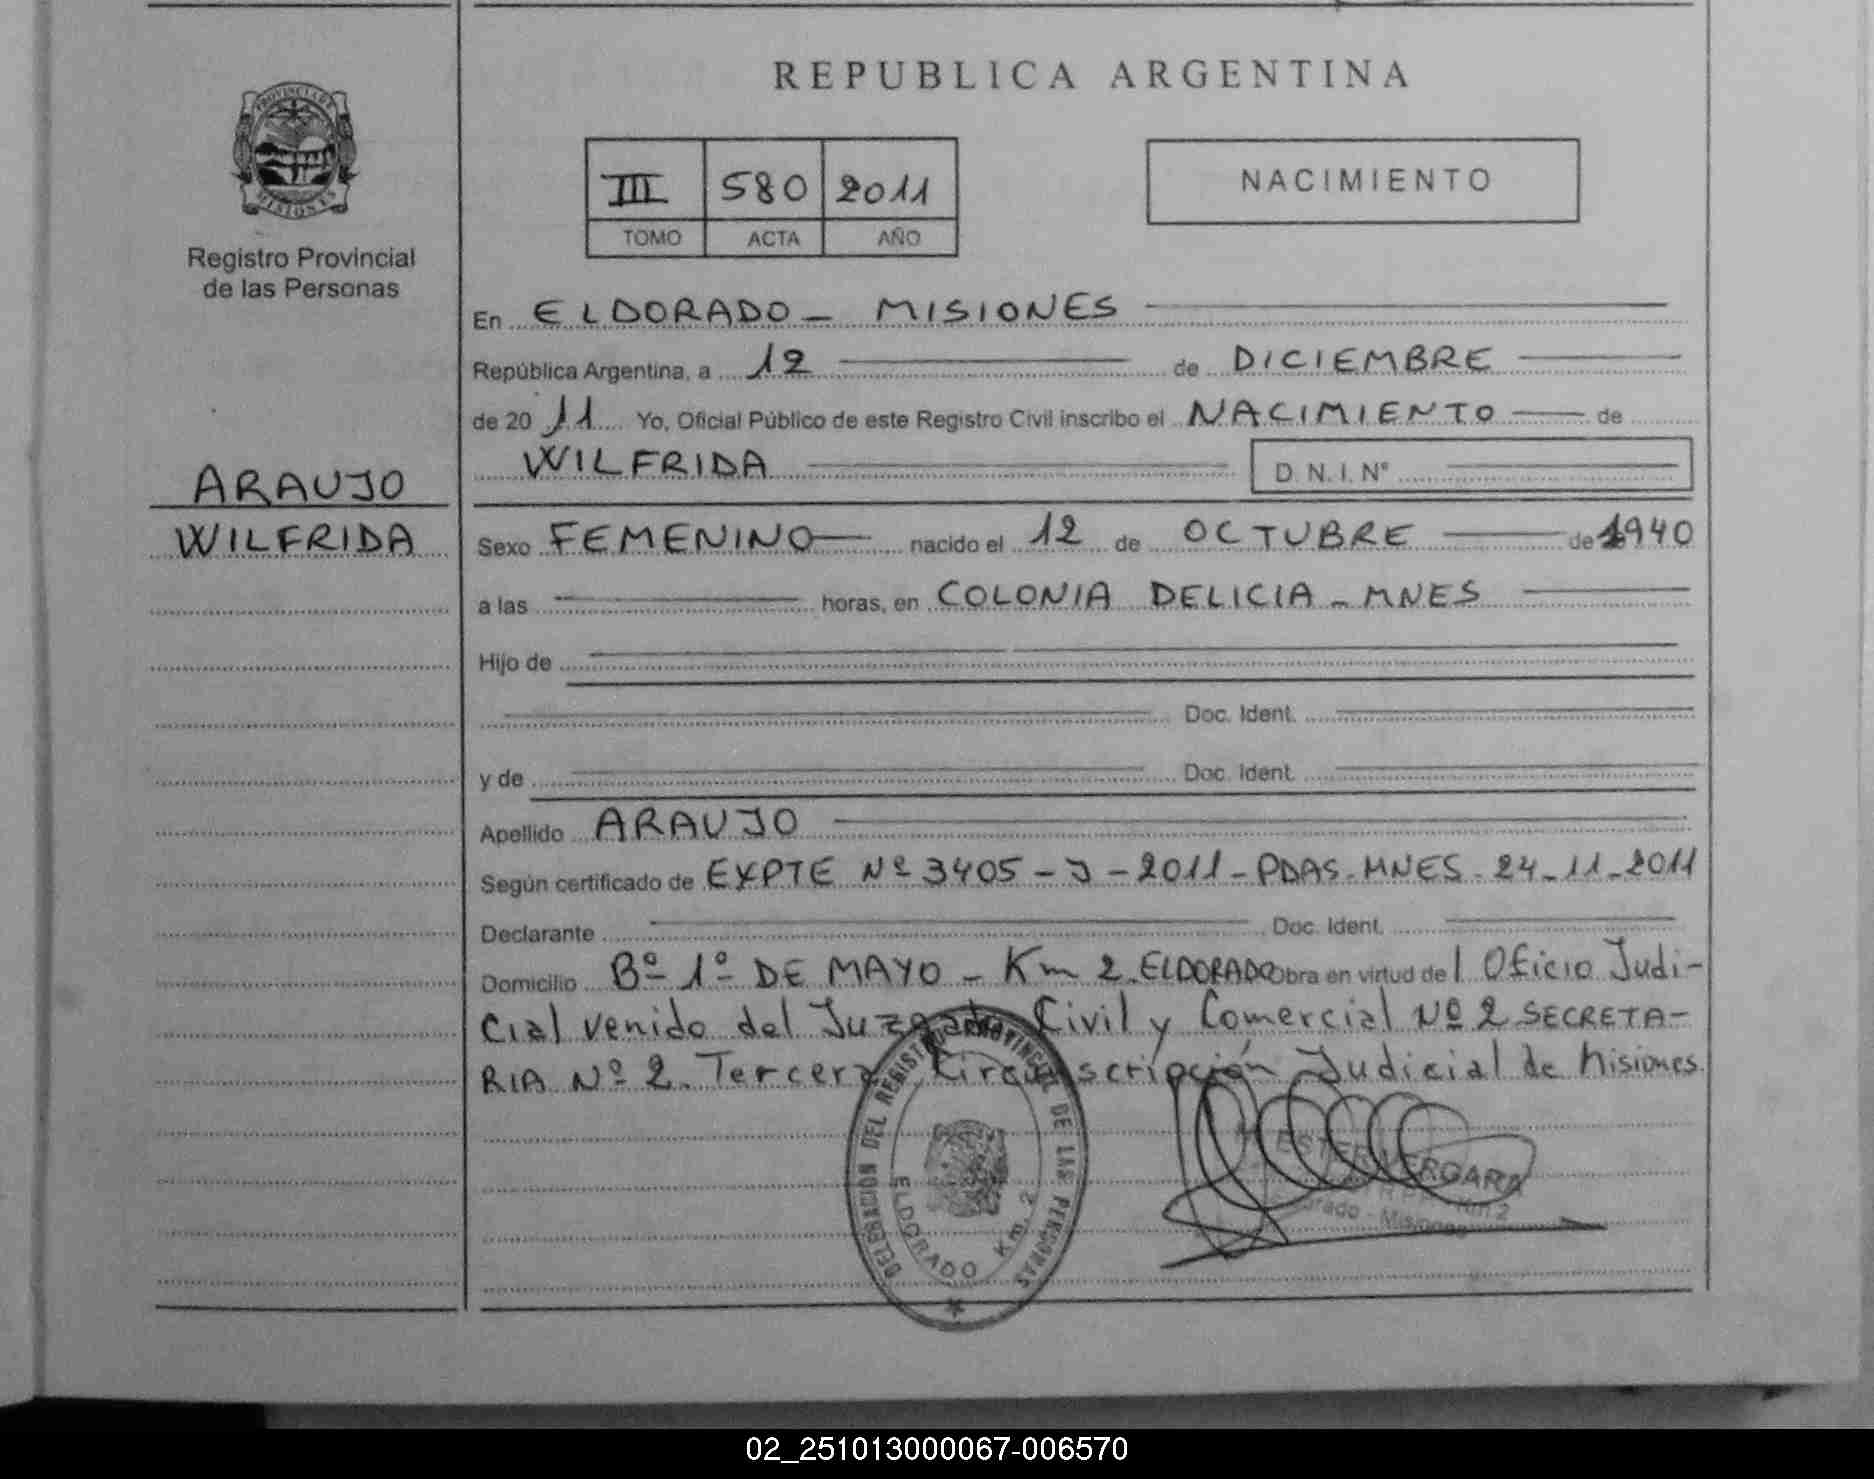 REPUBLICA ARGENTINA
PROVINCIA DE
MISIONES
Registro Provincial
de las Personas
III 580 2011
TOMO ACTA AÑO
NACIMIENTO
En ELDORADO - MISIONES
República Argentina, a 12 de DICIEMBRE
de 2011 Yo, Oficial Público de este Registro Civil inscribo el NACIMIENTO de
WILFRIDA D.N.I. Nº
ARAUJO
WILFRIDA
Sexo FEMENINO nacido el 12 de OCTUBRE de 1940
a las horas, en COLONIA DELICIA - MNES
Hijo de
Doc. Ident.
y de Doc. Ident.
Apellido ARAUJO
Según certificado de EXPTE Nº 3405 - J - 2011 - PDAS - MNES - 24 - 11 - 2011
Declarante Doc. Ident.
Domicilio Bº 1º DE MAYO - Km 2 ELDORADO Obra en virtud del Oficio Judi-
cial venido del Juzgado Civil y Comercial Nº 2 SECRETA-
RIA Nº 2. Tercera Circunscripción Judicial de Misiones.
DELEGACION DEL REGISTRO PROVINCIAL DE LAS PERSONAS
ELDORADO Km. 2
ESTER VERGARA
Km 2
Eldorado - Misiones
02_251013000067-006570